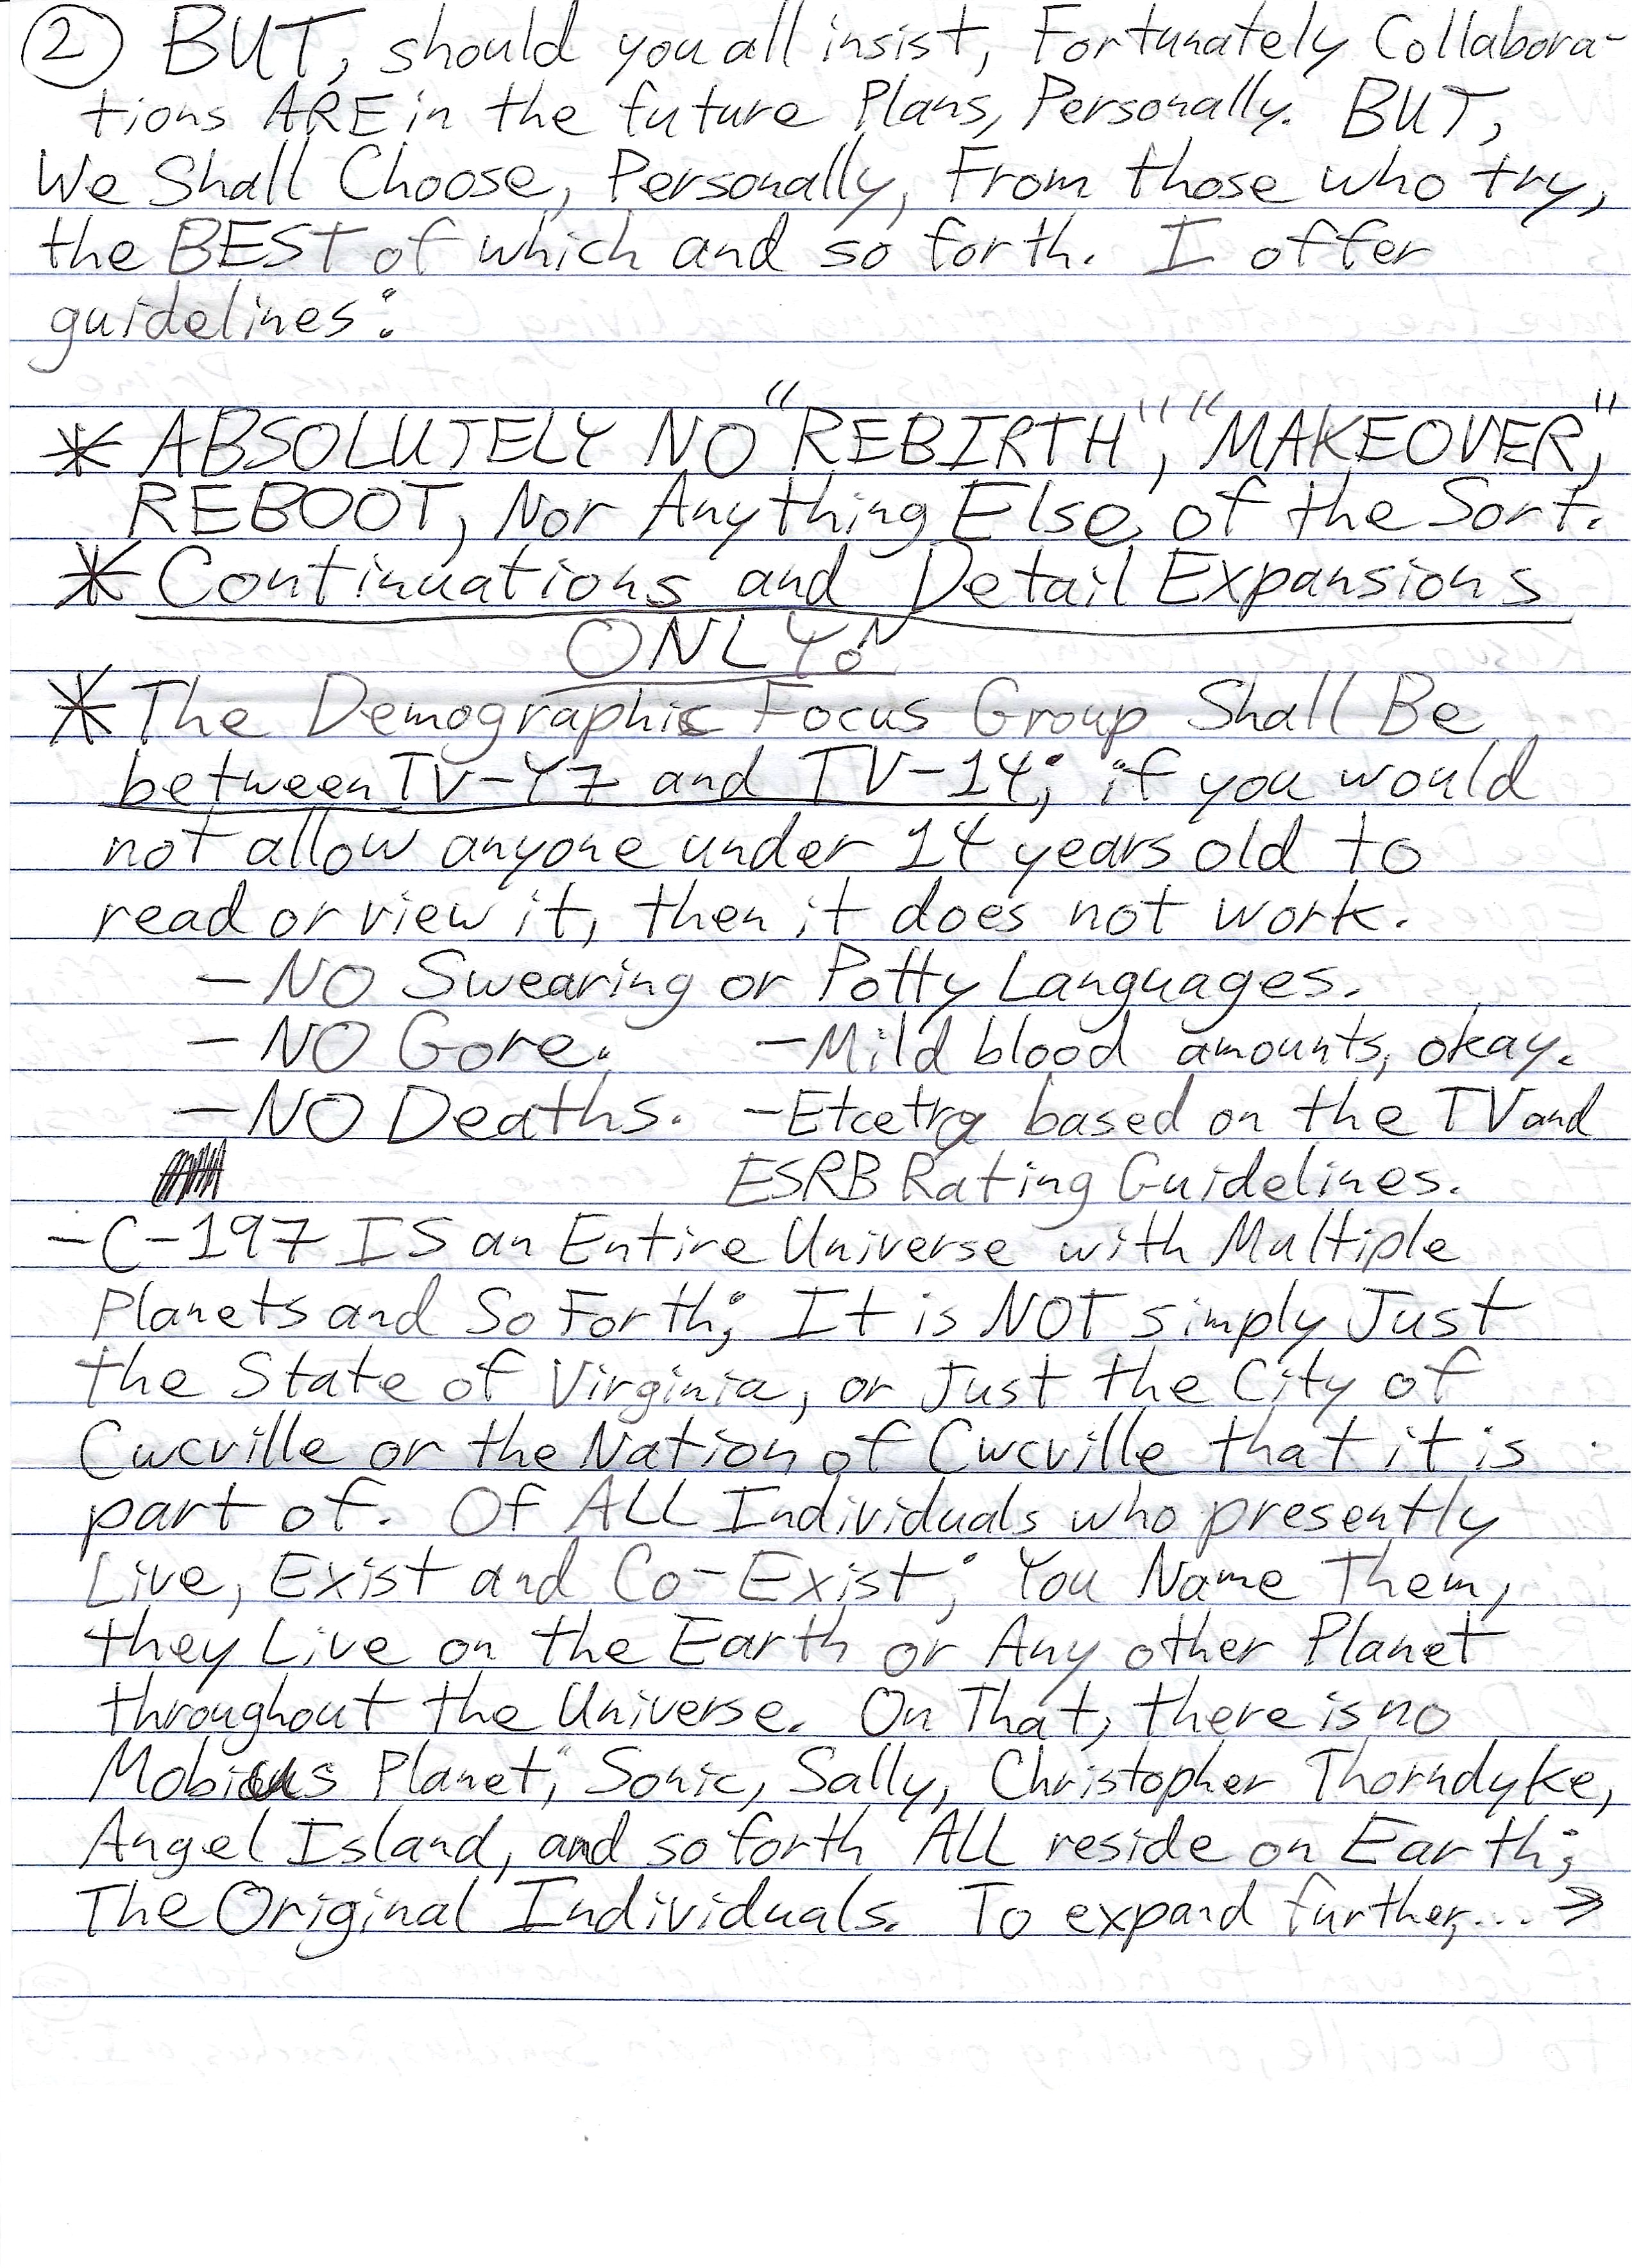 ② BUT, should you all insist, Fortunately Collabora-
tions ARE in the future Plans, Personally. BUT,
We Shall Choose, Personally, From those who try,
the BEST of which and so forth. I offer
guidelines:
* ABSOLUTELY NO "REBIRTH", "MAKEOVER,"
REBOOT, Nor Anything Else of the Sort.
* Continuations and Detail Expansions
ONLY!
* The Demographic Focus Group Shall Be
between TV-Y7 and TV-14; if you would
not allow anyone under 14 years old to
read or view it, then it does not work.
- NO Swearing or Potty Languages.
- NO Gore. - Mild blood amounts, okay.
- NO Deaths. - Etcetra based on the TV and
ESRB Rating Guidelines.
- C-197 IS an Entire Universe with Multiple
Planets and So Forth; It is NOT simply Just
the State of Virginia, or Just the City of
Cwcville or the Nation of Cwcville that it is
part of. Of ALL Individuals who presently
Live, Exist and Co-Exist; You Name Them,
they Live on the Earth or Any other Planet
throughout the Universe. On That, there is no
Mobius Planet; Sonic, Sally, Christopher Thorndyke,
Angel Island, and so forth ALL reside on Earth;
The Original Individuals. To expand further,... →